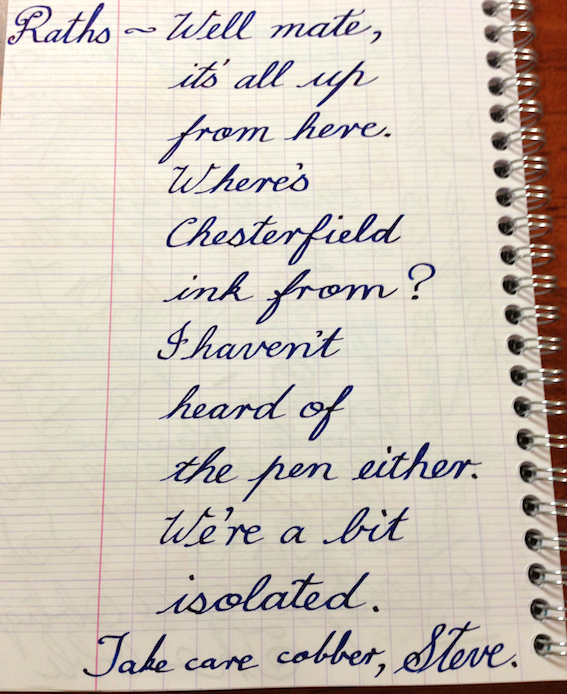 Raths ~ Well mate,
it's all up
from here.
Where's
Chesterfield
ink from?
I haven't
heard of
the pen either.
We're a bit
isolated.
Take care cobber, Steve.